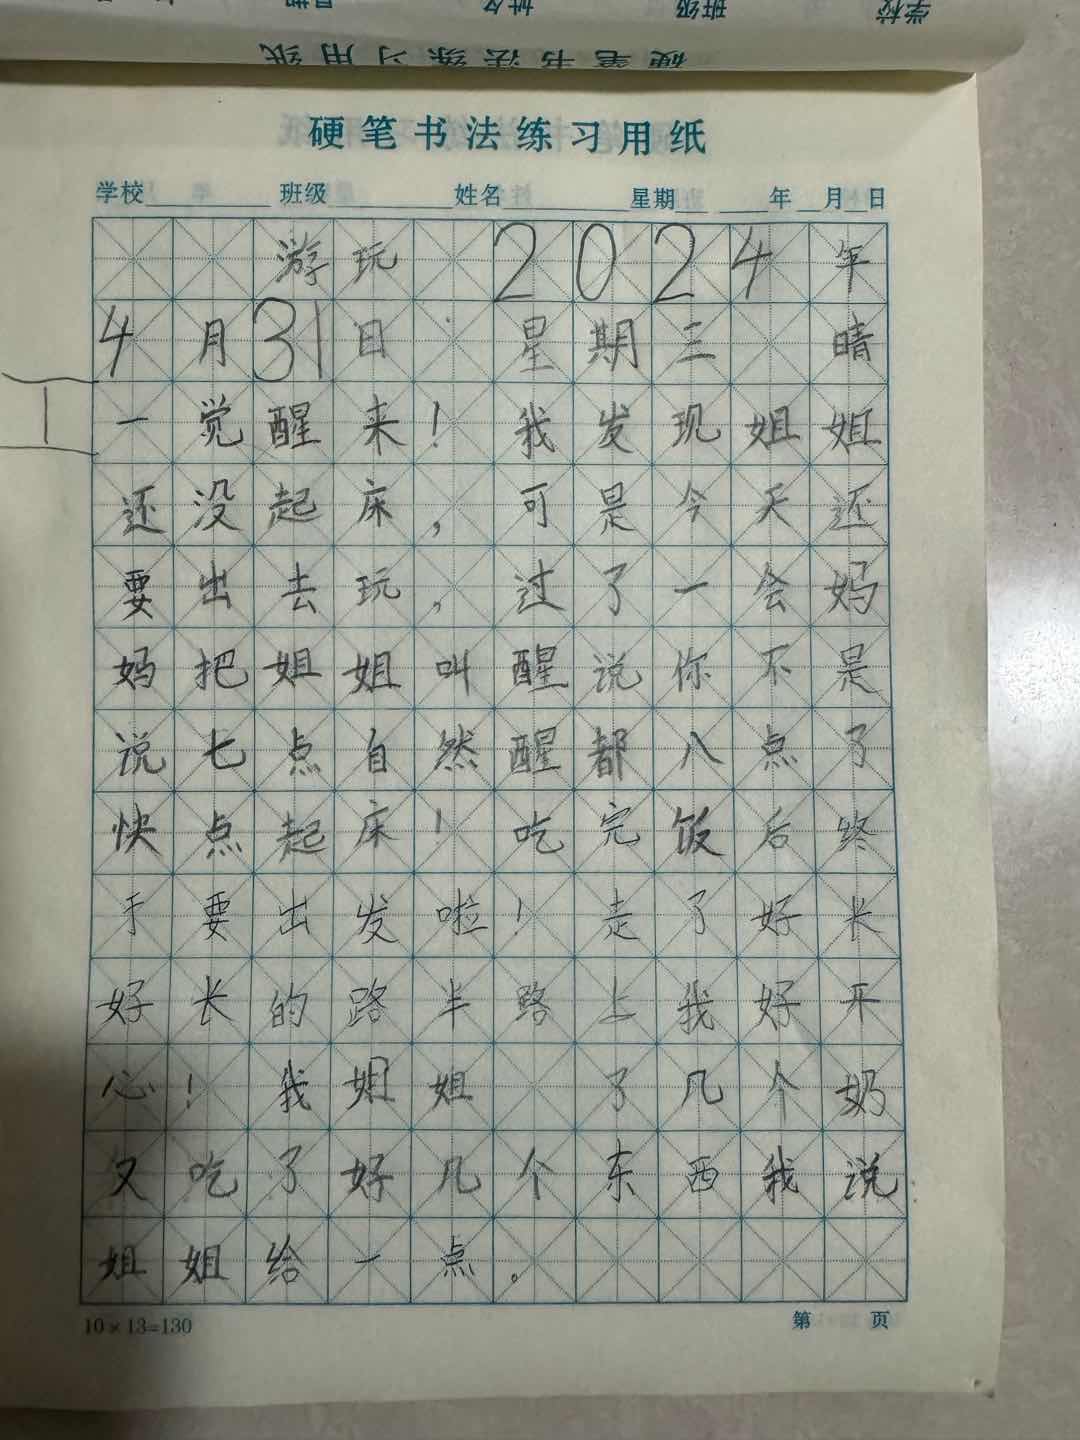 硬笔书法练习用纸
学校 班级 姓名 星期 年 月 日
硬笔书法练习用纸
学校 班级 姓名 星期 年 月 日
游玩 2024年
4月31日 星期三 晴
一觉醒来！我发现姐姐
还没起床，可是今天还
要出去玩，过了一会妈
妈把姐姐叫醒说你不是
说七点自然醒都八点了
快点起床！吃完饭后终
于要出发啦！走了好长
好长的路半路上我好开
心！我姐姐 了几个奶
又吃了好几个东西我说
姐姐给一点。
10×13=130 第 页